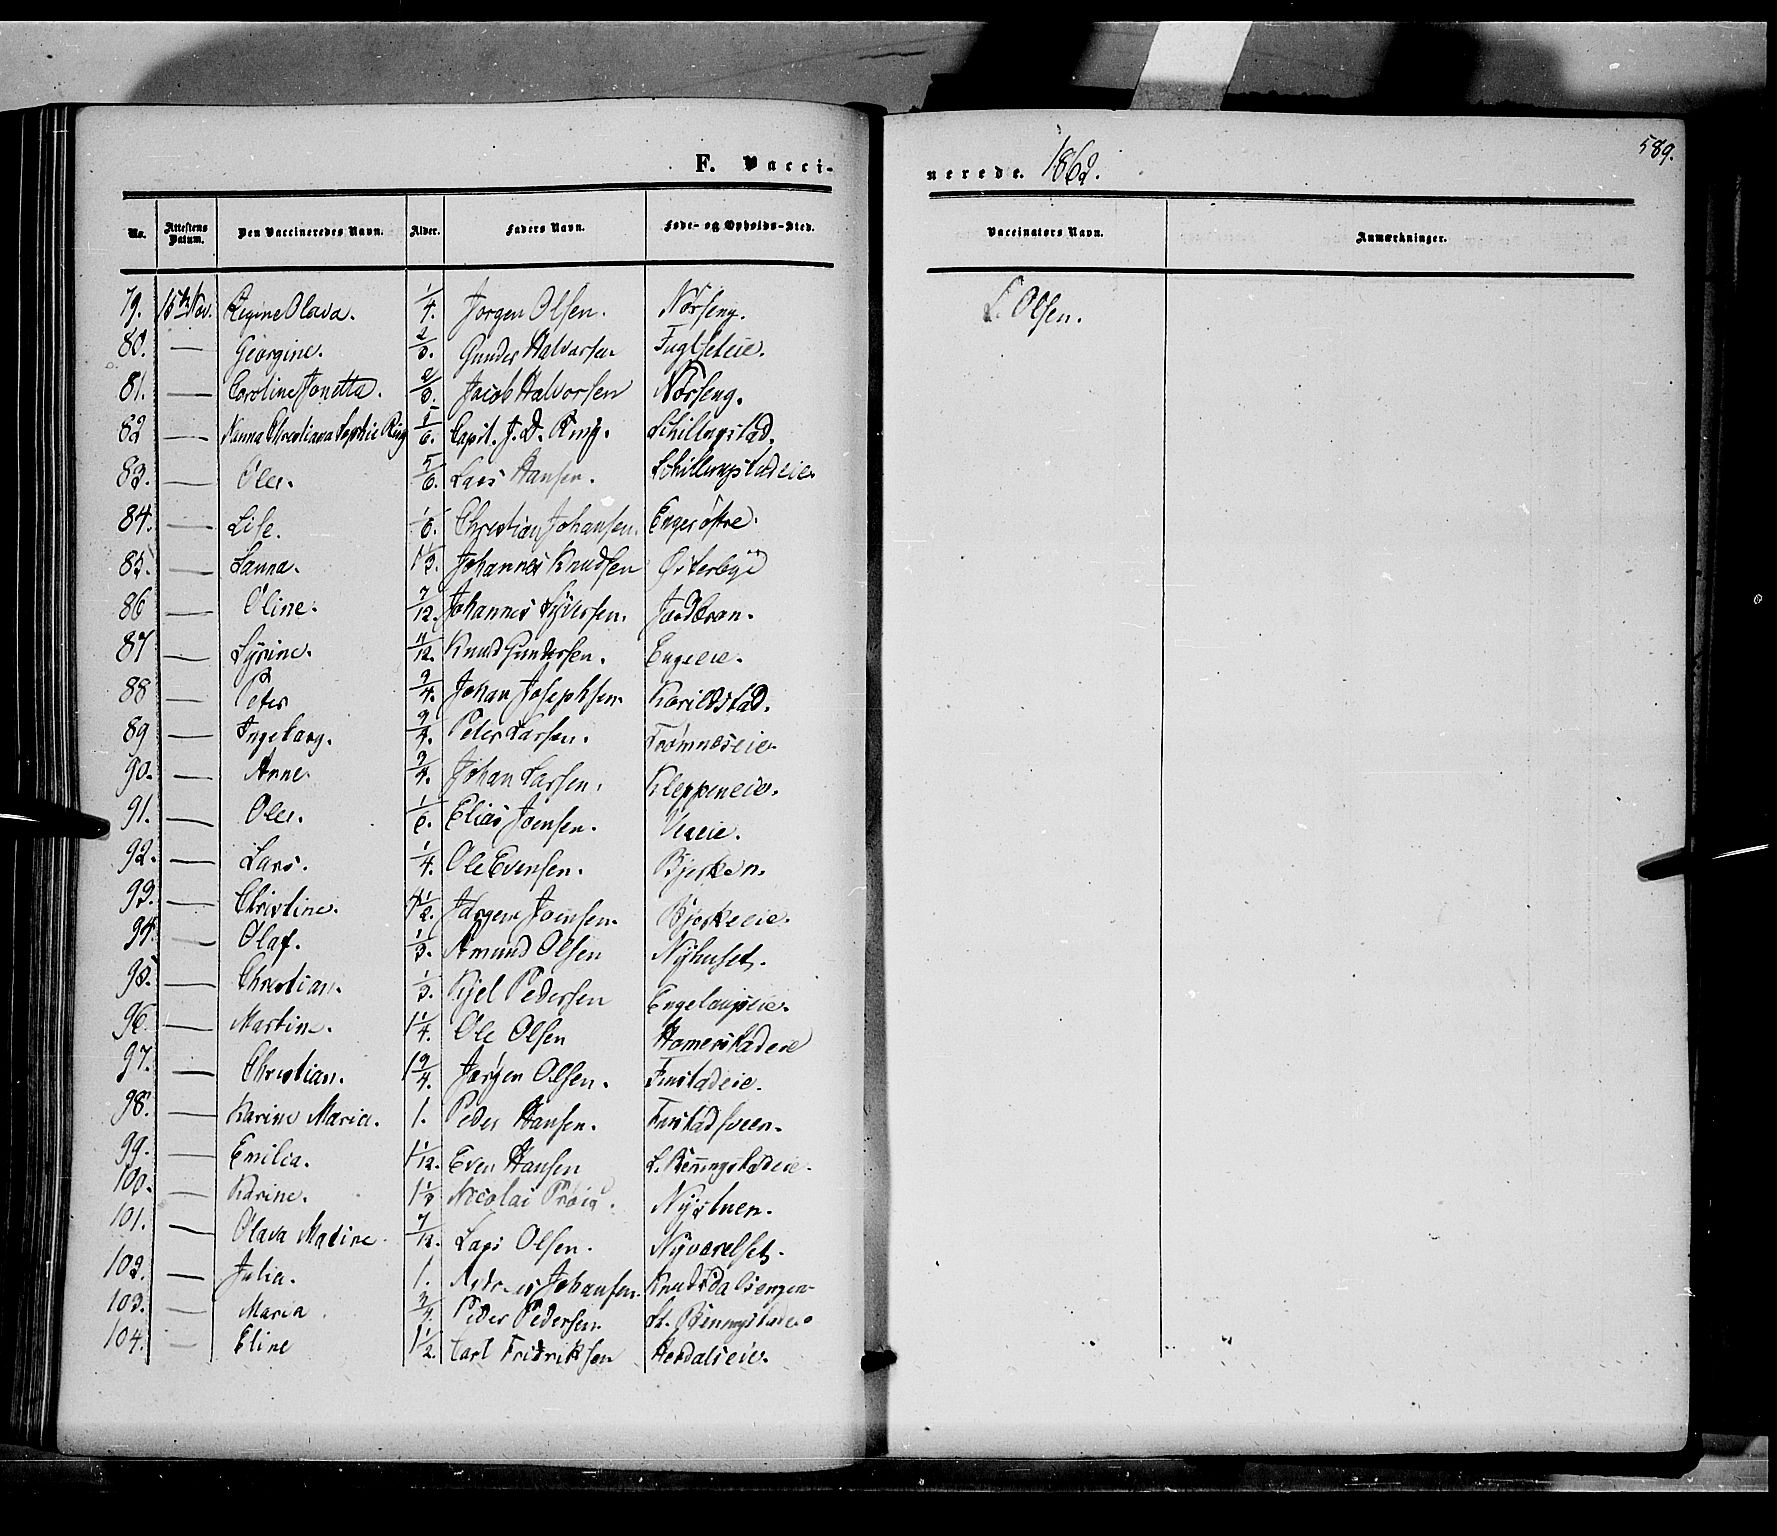 F. Vacci-
nerede. 1862.
589.
No. Attestens Datum. Den Vaccineredes Navn. Alder. Faders Navn. Føde- og Opholds-Sted. Vaccinators Navn. Anmærkninger.
79. 15de Nov. Regine Olava. 1/4. Jørgen Olsen. Nørseng. L. Olsen.
80. — Georgine. 2/3. Gunder Halvorsen Fuglseteie.
81. — Caroline Jonetta. 2/3. Jacob Halvorsen Nørseng.
82 — Nanna Christiana Sophie Ring 5/6. Capit. J. D. Ring. Schillingstad.
83. — Ole. 5/6. Lars Hansen. Schillingstadeie.
84. — Lise. 1/6. Christian Johansen. Enger østre.
85. — Lanna. 1 1/3. Johannes Knudsen Østerbye
86 — Oline. 7/12. Johannes Syversen. Jordbron.
87 — Syrine. 11/12. Knud Gundersen. Engeeie.
88 — Peter 3/4. Johan Josephsen. Karildstad.
89 — Ingeborg. 3/4. Peder Larsen. Tromneseie.
90. — Anne. 3/4. Johan Larsen. Kleppeneie.
91. — Ole. 1/6. Elias Joensen. Veeeie.
92. — Lars. 1/4. Ole Evensen. Bjerken.
93. — Christine. 1 1/2. Jørgen Joensen. Bjerkeeie.
94. — Olaf. 1/3. Amund Olsen Nyhuset.
95. — Christian. 1/3. Kjel Pedersen Engelaugseie.
96. — Martin. 1 1/4. Ole Olsen Hamerstadeie
97. — Christian. 1 3/4. Jørgen Olsen. Finstadeie.
98. — Karine Maria. 1. Peder Hansen. Finstadsveen.
99. — Emilia. 1 1/12. Even Hansen L. Benningstadeie.
100. — Karine. 1 1/2 Nicolai Frois. Nystuen.
101. — Olava Matine 7/12. Lars Olsen. Nyvarelset.
102. — Julia. 1. Andreas Johansen. Knudsdalsengen
103. — Maria. 3/4. Peder Pedersen. St. Benningstadeie
104. — Eline 1 1/2. Carl Fridriksen Herdalseie.